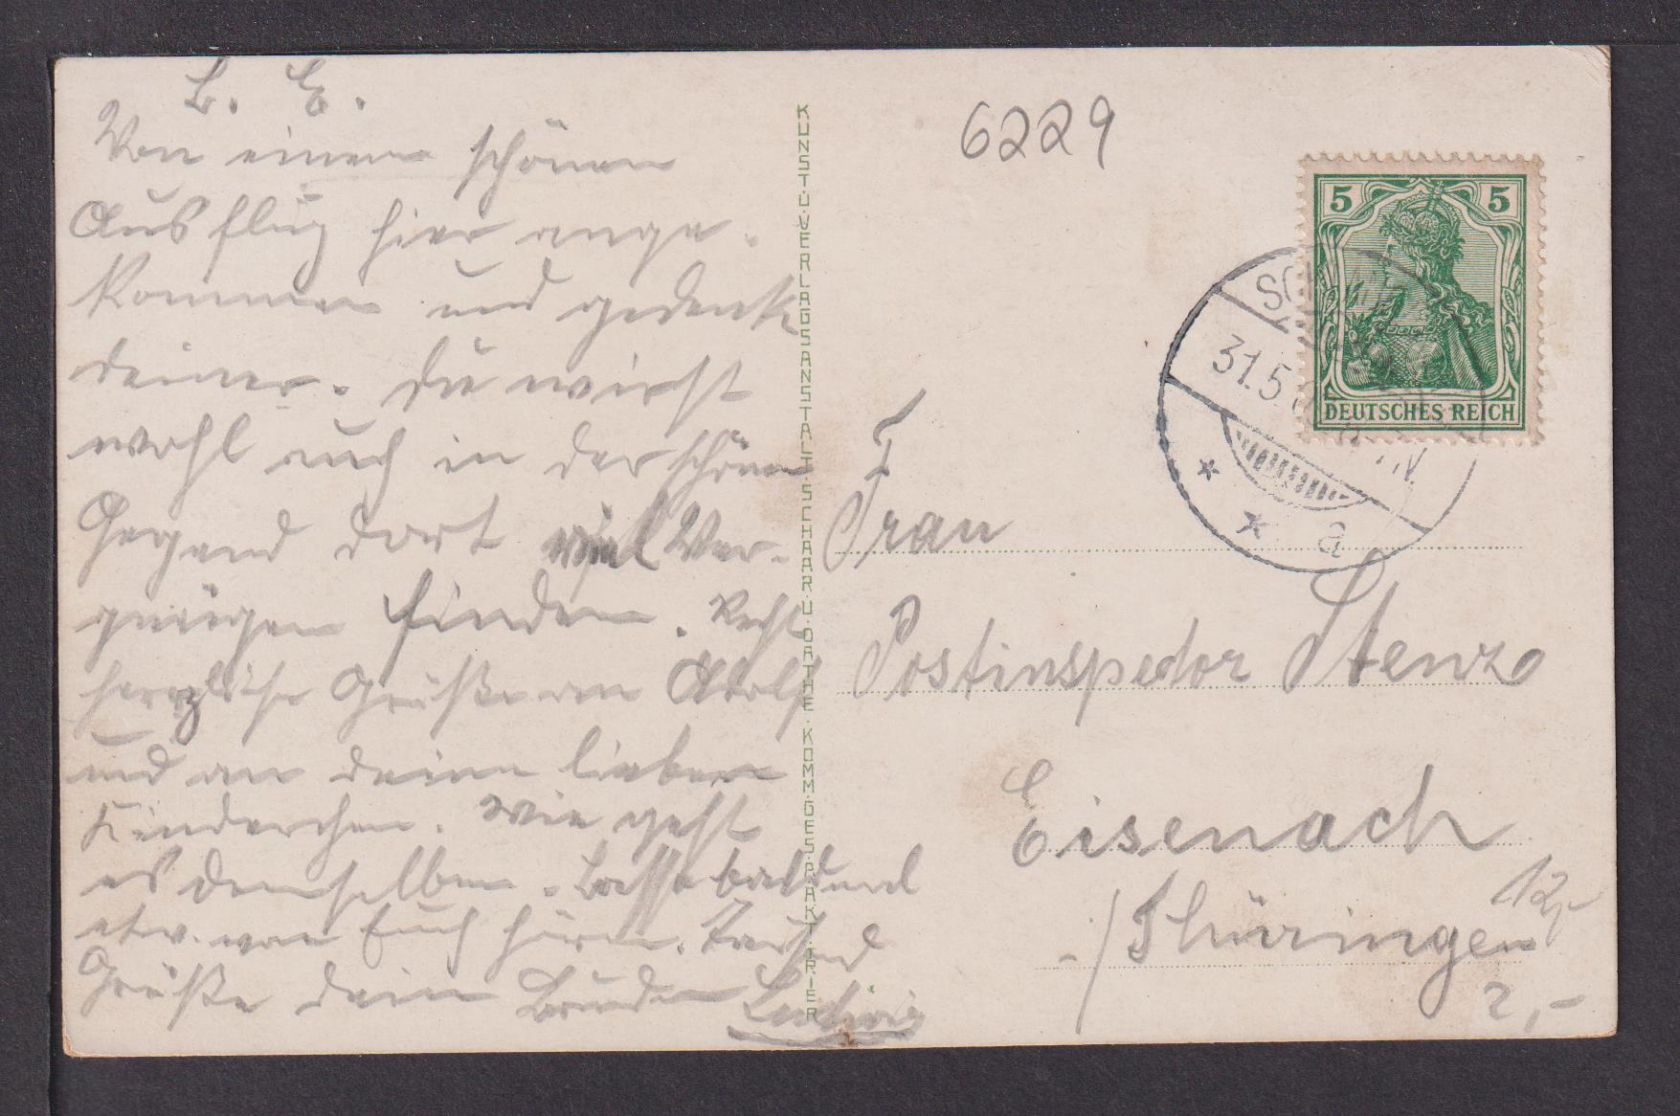 L. E.
Von einem schönen
Ausflug hier ange-
kommen und gedenke
deiner. Du wirst
wohl auch in der schönen
Gegend dort viel Ver-
gnügen finden. Recht
herzliche Grüße an Adolf
und an deine lieben
Kinderchen. Wie geht
es demselben. Lasse bald mal
etw. von Euch hören. Tausend
Grüße dein Bruder Ludwig
KUNST-U-VERLAGSANSTALT-SCHAAR-U-DATHE KOMM-GES-P-AKT-TRIER
6229
5 5
DEUTSCHES REICH
31.5
a
Frau
Postinspector Stenzo
Eisenach
./Thüringen
12,-
2,-